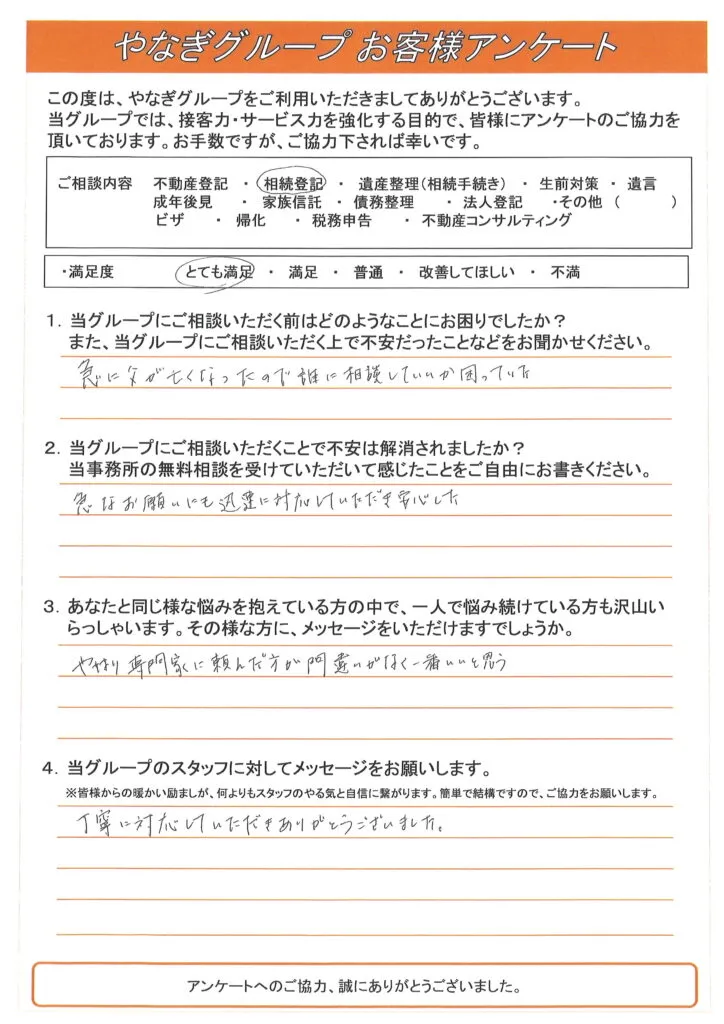 やなぎグループ お客様アンケート
この度は、やなぎグループをご利用いただきましてありがとうございます。
当グループでは、接客力・サービス力を強化する目的で、皆様にアンケートのご協力を
頂いております。お手数ですが、ご協力下されば幸いです。
ご相談内容 不動産登記 ・ 相続登記 ・ 遺産整理(相続手続き) ・ 生前対策 ・ 遺言
成年後見 ・ 家族信託 ・ 債務整理 ・ 法人登記 ・その他 ( )
ビザ ・ 帰化 ・ 税務申告 ・ 不動産コンサルティング
・満足度 とても満足 ・ 満足 ・ 普通 ・ 改善してほしい ・ 不満
1. 当グループにご相談いただく前はどのようなことにお困りでしたか?
また、当グループにご相談いただく上で不安だったことなどをお聞かせください。
急に父が亡くなったので誰に相談していいか困っていた
2. 当グループにご相談いただくことで不安は解消されましたか?
当事務所の無料相談を受けていただいて感じたことをご自由にお書きください。
急なお願いにも迅速に対応していただき安心した
3. あなたと同じ様な悩みを抱えている方の中で、一人で悩み続けている方も沢山い
らっしゃいます。その様な方に、メッセージをいただけますでしょうか。
やはり専門家に頼んだ方が間違いがなく一番いいと思う
4. 当グループのスタッフに対してメッセージをお願いします。
※皆様からの暖かい励ましが、何よりもスタッフのやる気と自信に繋がります。簡単で結構ですので、ご協力をお願いします。
丁寧に対応していただきありがとうございました。
アンケートへのご協力、誠にありがとうございました。